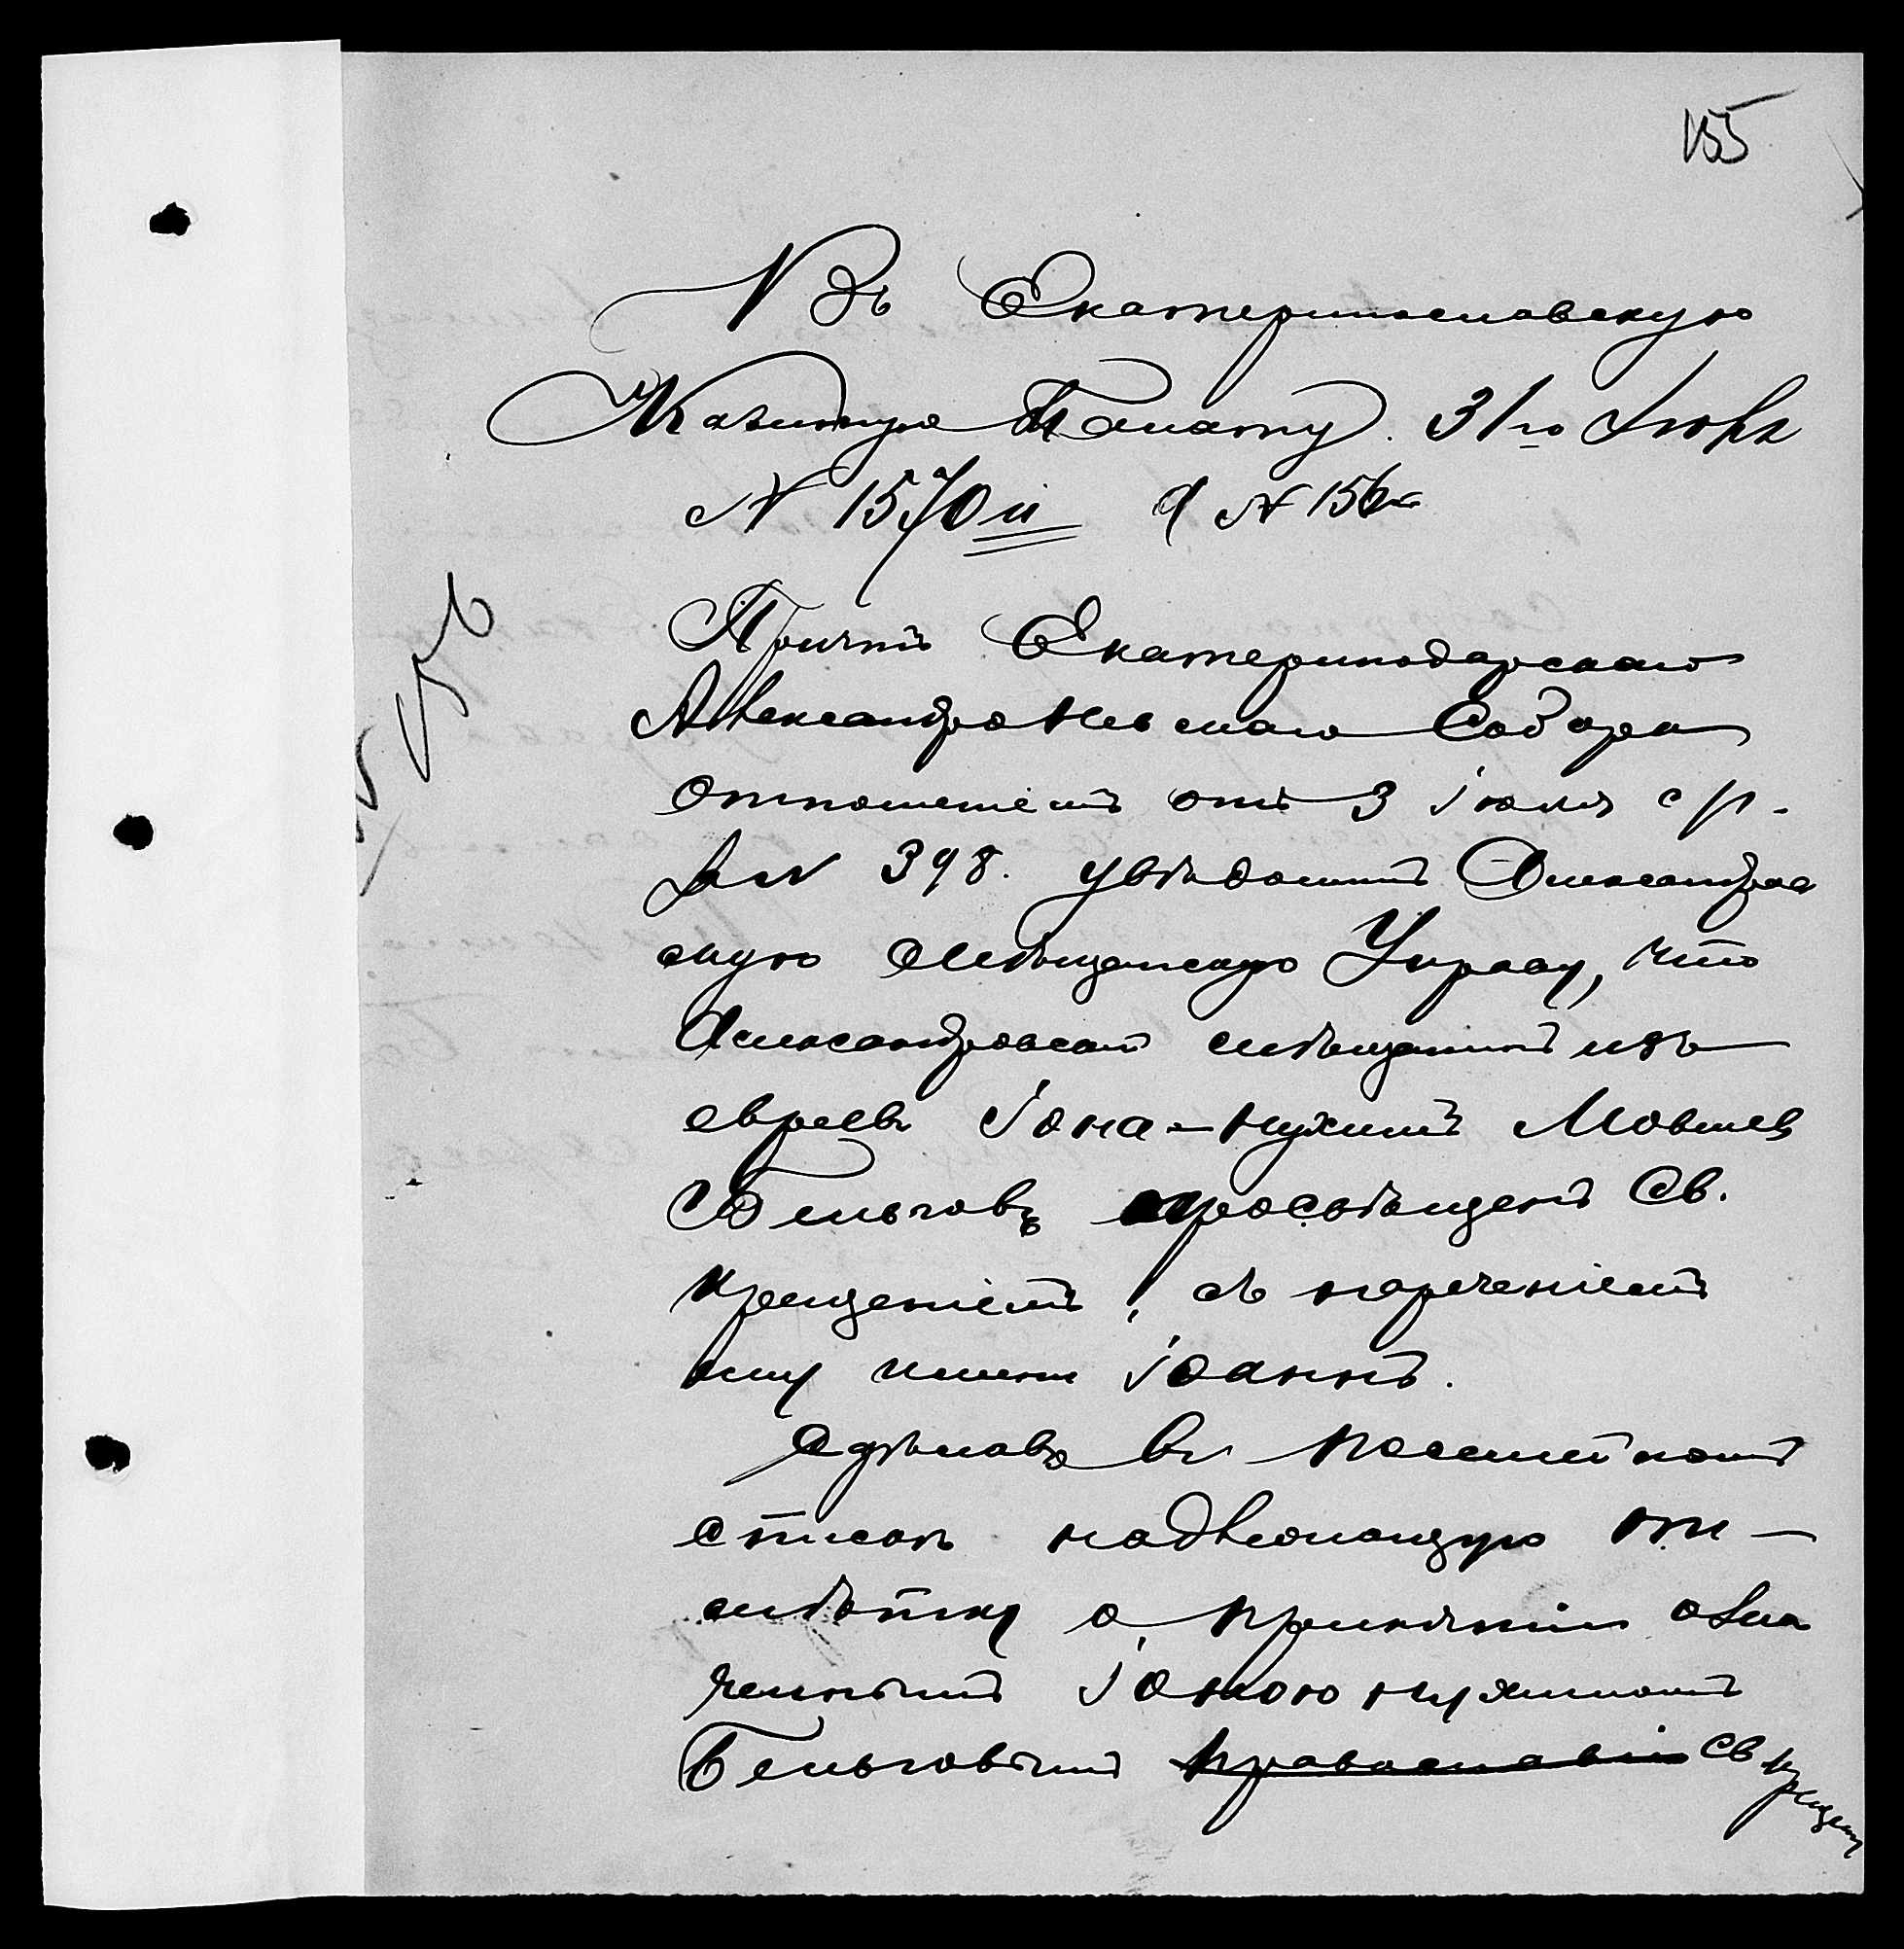 155
Въ Екатеринославскую
Казенную Палату. 31го Іюля
N 1570
Причтъ Екатеринодарскаго
Александро Невскаго Собора
отношеніемъ отъ 3 іюля с/г.
за N 398. увѣдомилъ Александров
скую Мѣщанскую Управу, что
Александровскій мѣщанинъ изъ
евреевъ Іона-Нухимъ Мовшев
Бельговъ просвѣщенъ Св.
крещеніемъ, съ нареченіемъ
ему имени Іоаннъ.
Сдѣлавъ въ посемейномъ
списке надлежащую от-
мѣтку о принятіи озна
ченнымъ Іоною Нухимомъ
Бельговымъ православія Св крещен